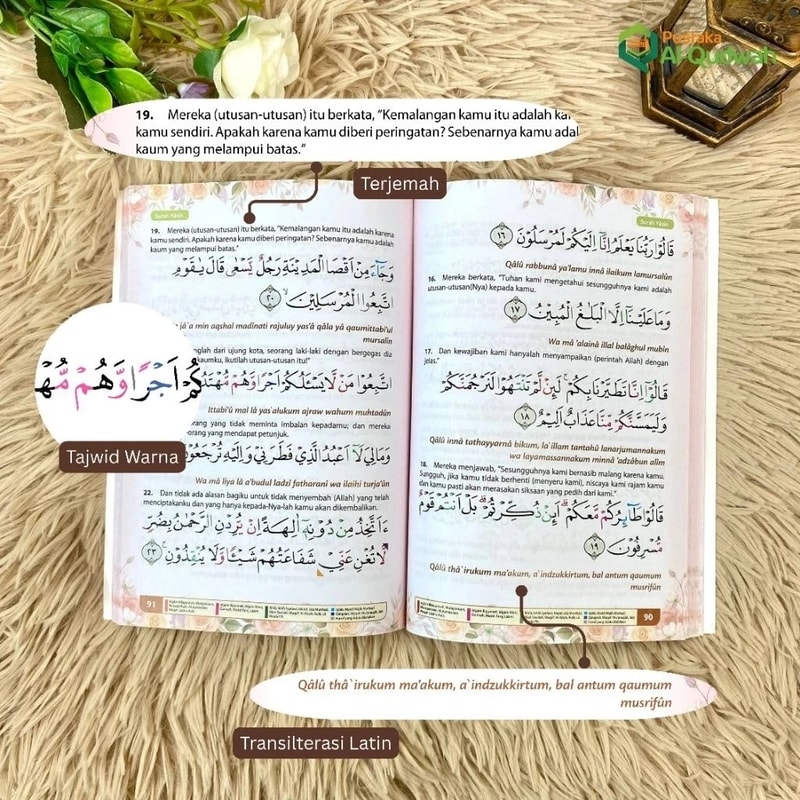 Pustaka
Al-Qudwah
19. Mereka (utusan-utusan) itu berkata, "Kemalangan kamu itu adalah
kamu sendiri. Apakah karena kamu diberi peringatan? Sebenarnya kamu
kaum yang melampui batas."
Terjemah
Surah Yâsin
19. Mereka (utusan-utusan) itu berkata, "Kemalangan kamu itu adalah karena
kamu sendiri. Apakah karena kamu diberi peringatan? Sebenarnya kamu adalah
kaum yang melampui batas."
وَجَاۤءَ مِنْ اَقْصَا الْمَدِيْنَةِ رَجُلٌ يَّسْعٰى قَالَ يٰقَوْمِ
اتَّبِعُوا الْمُرْسَلِيْنَۙ ٢٠
jâ`a min aqshal madînati rajuluy yas'â qâla yâ qaumittabi'ul
mursalîn
dari ujung kota, seorang laki-laki dengan bergegas dia
ikutilah utusan-utusan itu!"
اتَّبِعُوْا مَنْ لَّا يَسْـَٔلُكُمْ اَجْرًا وَّهُمْ مُّهْتَدُوْنَ
Ittabi'û mal lâ yas'alukum ajraw wahum muhtadûn
orang yang tidak meminta imbalan kepadamu; dan mereka
orang yang mendapat petunjuk.
وَمَالِيَ لَآ اَعْبُدُ الَّذِيْ فَطَرَنِيْ وَاِلَيْهِ تُرْجَعُوْنَ
Wa mâ liya lâ a'budul ladzî fatharanî wa ilaihi turja'ûn
22. Dan tidak ada alasan bagiku untuk tidak menyembah (Allah) yang telah
menciptakanku dan yang hanya kepada-Nya-lah kamu akan dikembalikan.
ءَاَتَّخِذُ مِنْ دُوْنِهٖٓ اٰلِهَةً اِنْ يُّرِدْنِ الرَّحْمٰنُ بِضُرٍّ
لَّا تُغْنِ عَنِّيْ شَفَاعَتُهُمْ شَيْـًٔا وَّلَا يُنْقِذُوْنِۚ ٢٣
91
كُمْ اَجْرًا وَّهُمْ مُّهْ
Tajwid Warna
Surah Yâsin
قَالُوْا رَبُّنَا يَعْلَمُ اِنَّآ اِلَيْكُمْ لَمُرْسَلُوْنَ ١٦
Qâlû rabbunâ ya'lamu innâ ilaikum lamursalûn
16. Mereka berkata, "Tuhan kami mengetahui sesungguhnya kami adalah
utusan-utusan(Nya) kepada kamu.
وَمَا عَلَيْنَآ اِلَّا الْبَلٰغُ الْمُبِيْنُ ١٧
Wa mâ 'alainâ illal balâghul mubîn
17. Dan kewajiban kami hanyalah menyampaikan (perintah Allah) dengan
jelas."
قَالُوْٓا اِنَّا تَطَيَّرْنَا بِكُمْۚ لَىِٕنْ لَّمْ تَنْتَهُوْا لَنَرْجُمَنَّكُمْ
وَلَيَمَسَّنَّكُمْ مِّنَّا عَذَابٌ اَلِيْمٌ ١٨
Qâlû innâ tathayyarnâ bikum, la`illam tantahû lanarjumannakum
wa layamassannakum minnâ 'adzâbun alîm
18. Mereka menjawab, "Sesungguhnya kami bernasib malang karena kamu.
Sungguh, jika kamu tidak berhenti (menyeru kami), niscaya kami rajam kamu
dan kamu pasti akan merasakan siksaan yang pedih dari kami."
قَالُوْا طَاۤىِٕرُكُمْ مَّعَكُمْۗ اَىِٕنْ ذُكِّرْتُمْۗ بَلْ اَنْتُمْ قَوْمٌ
مُّسْرِفُوْنَ ١٩
Qâlû thâ`irukum ma'akum, a`indzukkirtum, bal antum qaumum
musrifûn
90
Qâlû thâ`irukum ma'akum, a`indzukkirtum, bal antum qaumum
musrifûn
Transilterasi Latin